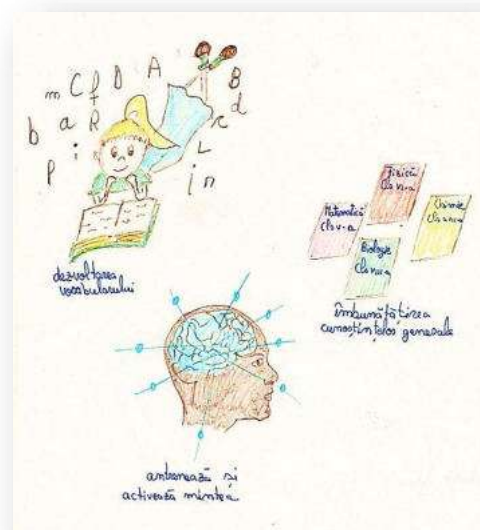 m C f D A B
b a R d
P i r
L
i n
dezvoltarea
vocabularului
Fizică
Cls VI-a
Matematică
Cls V-a
Chimie
Biologie
Cls VIII-a
îmbunătățirea
cunoștințelor generale
antrenează și
activează mintea